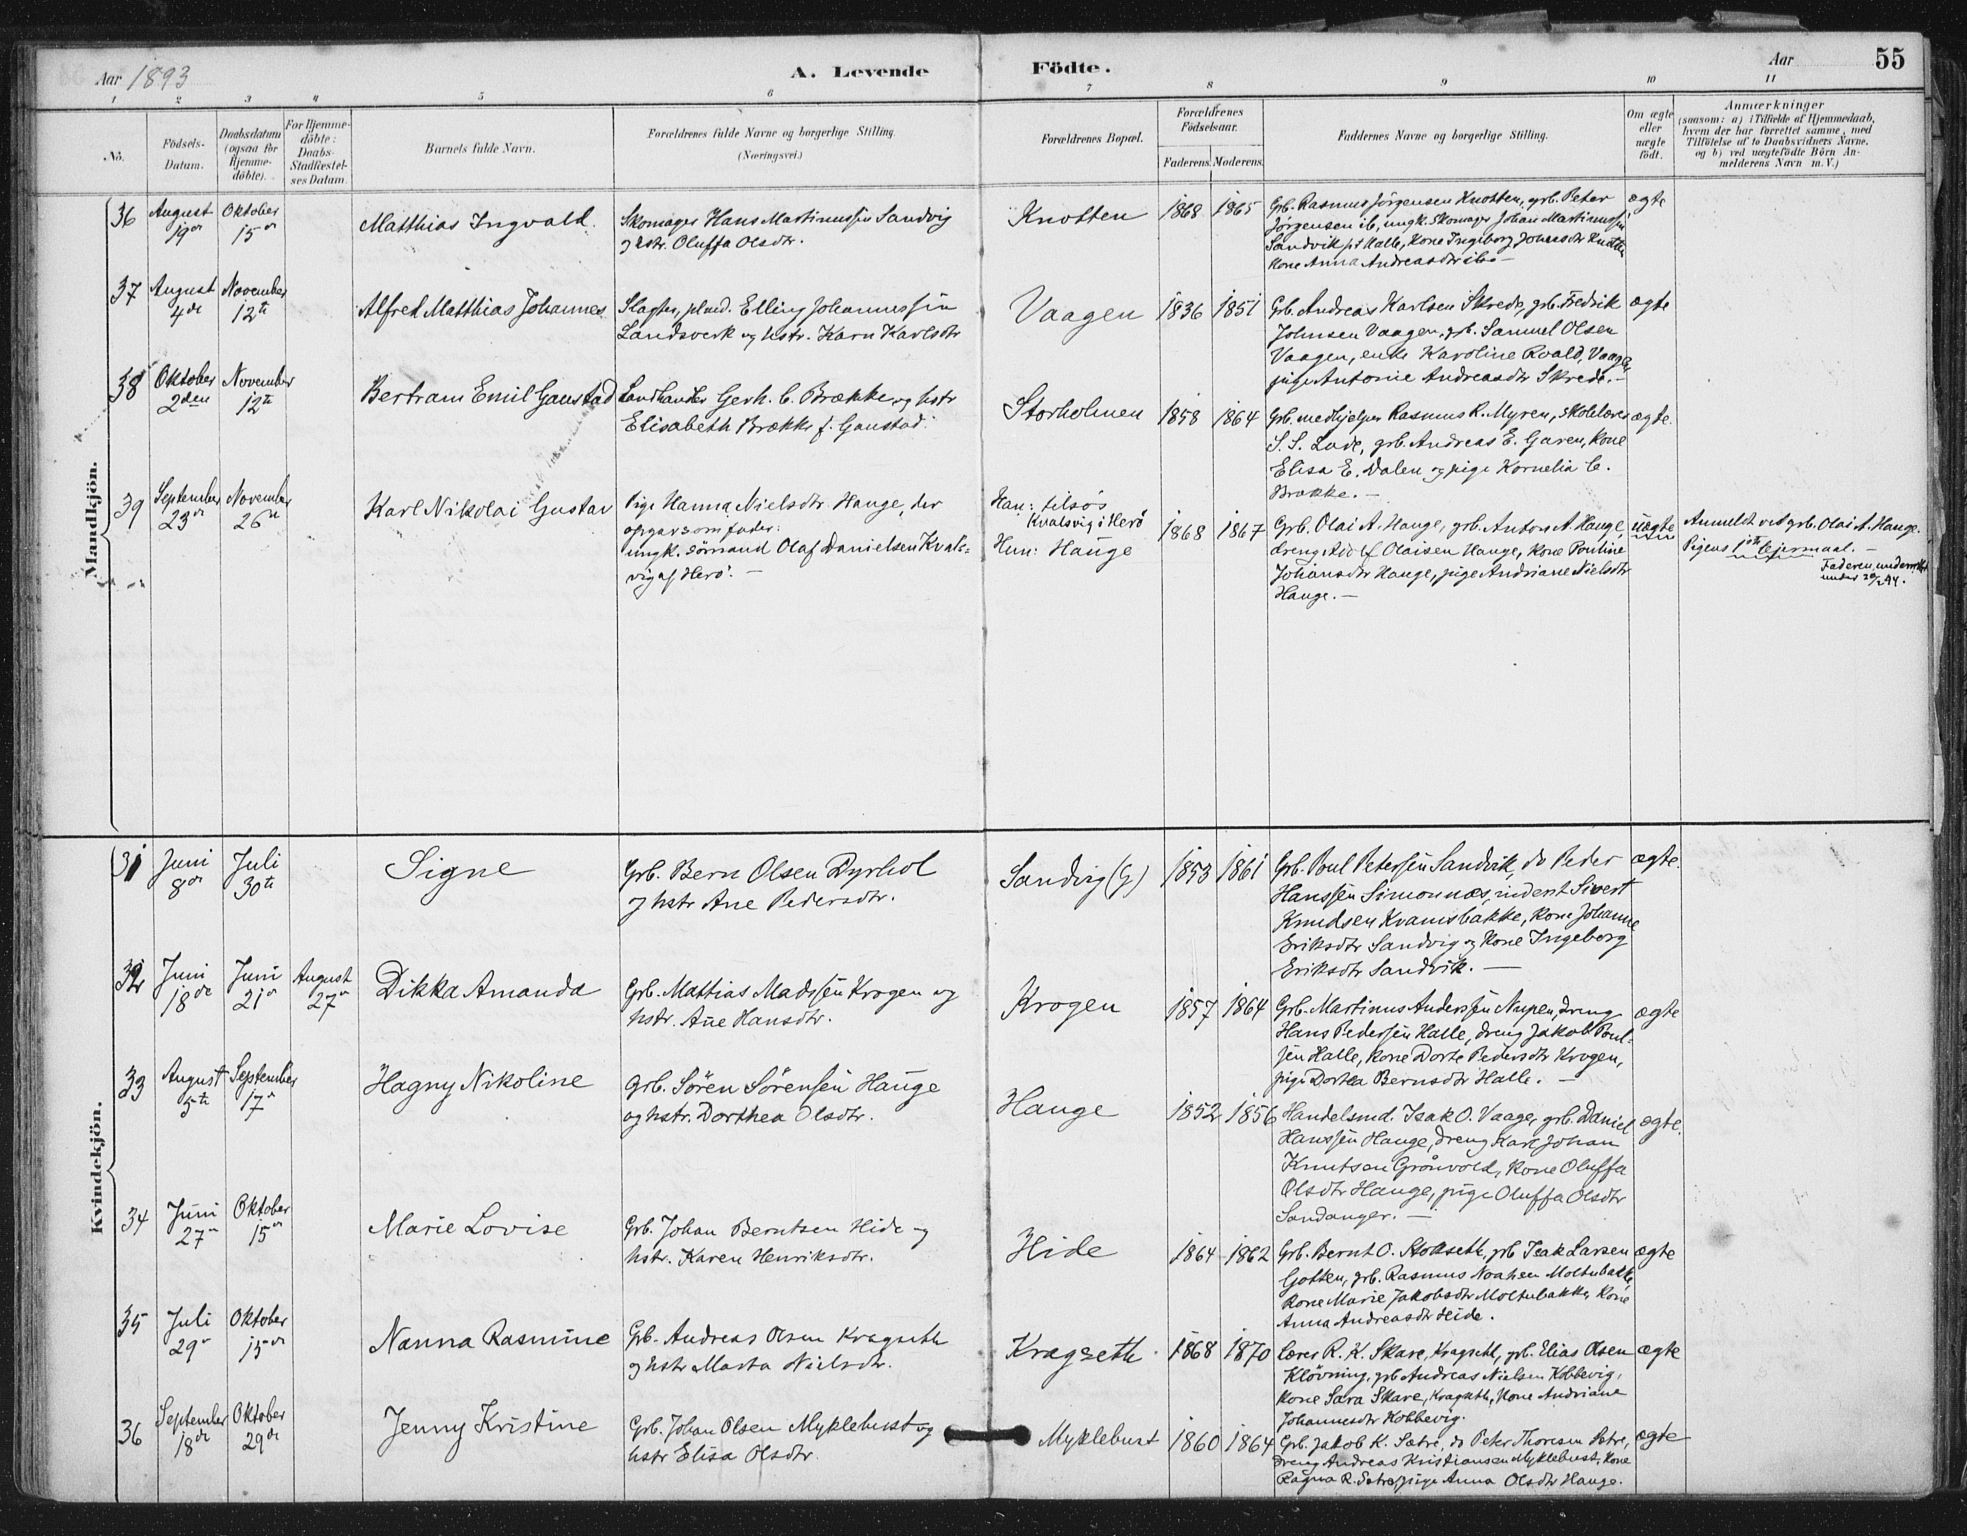 Aar 1893
A. Levende
Födte.
Aar
55
1 2 3 4 5 6 7 8 9 10 11
No.
Födsels-
Datum.
Daabsdatum
(ogsaa for
Hjemme-
döbte).
For Hjemme-
döbte:
Daabs-
Stadfæstel-
ses Datum.
Barnets fulde Navn.
Forældrenes fulde Navne og borgerlige Stilling.
(Næringsvei.)
Forældrenes Bopæl.
Forældrenes
Födselsaar.
Faderens. Moderens.
Faddernes Navne og borgerlige Stilling.
Om ægte
eller
uægte
födt.
Anmærkninger
(saasom: a) i Tilfælde af Hjemmedaab,
hvem der har forrettet samme, med
Tilföielse af to Daabsvidners Navne,
og b) ved uægtefödte Börn An-
melderens Navn m.V.)
Mandkjön.
36
August
19de
Oktober
15de
Matthias Ingvald.
Skomager Hans Martinussen Sandvig
og hstr. Oluffa Olsdtr.
Knotten
1868
1865
Grb. Rasmus Jörgensen Knotten, grb. Peter
Jörgensen ib, ungk. Skomager Johan Martinussen
Sandvik pt Halle, Kone Ingeborg Johnsdtr Knotten
Kone Anna Andreasdtr ib. —
ægte
37
August
4de
November
12te
Alfred Matthias Johannes
Slagter, plmd. Elling Johannessen
Landsverk og hstr. Karn Karlsdtr
Vaagen
1836
1851
Grb. Andreas Karlsen Skrede, grb. Fredrik
Johnsen Vaagen, grb. Samuel Olsen
Vaagen, enke Karoline Roald, Vaagen,
pige Antonie Andreasdtr Skrede. —
ægte
38
Oktober
2den
November
12te
Bertram Emil Gaustad
Landhandler Gerh. C. Brække og hstr
Elisabeth Brække f. Gaustad.
Storholmen
1858
1864
Grb. medhjelper Rasmus R. Myren, skolelærer
S. S. Lade, grb. Andreas E. Garen, Kone
Elisa E. Dalen og pige Kornelia C.
Brække. —
ægte.
39
September
23de
November
26de
Karl Nikolai Gustav
Pige Hanna Nielsdtr Hauge, der
opgav som fader:
ungk. sömand Olaf Danielsen Kvals-
vig af Herö. —
Han: tilsös
Kvalsvig i Herö
Hun: Hauge
1868
1867
Grb. Olai A. Hauge, grb. Anton A. Hauge,
dreng Olaisen Hauge, Kone Pouline
Johansdtr Hauge, pige Andriane Nielsdtr
Hauge. —
uægte
Anmeldt ved grb. Olai A. Hauge.
Pigens 1ste lejermaal. —
Faderen underrettet
under 20/2 94.
Kvindekjön.
31
Juni
8de
Juli
30te
Signe
Grb. Bern Olsen Dyrhol
og hstr Ane Pedersdtr.
Sandvig (G)
1853
1861
Grb. Poul Petersen Sandvik, do Peder
Hanssen Simonnæs, inderst Sivert
Knudsen Kvamsbakke, Kone Johanne
Eriksdtr Sandvig og Kone Ingeborg
Eriksdtr Sandvik. —
ægte.
32
Juni
18de
Juni
21de
August
27de
Dikka Amanda
Grb. Mattias Madssen Krogen og
hstr. Ane Hansdtr.
Krogen
1857
1864
Grb. Martinus Anderssen Nupen, dreng
Hans Pederssen Halle, dreng Jakob Poul-
sen Halle, Kone Dorte Pedersdtr Krogen,
pige Dorthea Bernsdtr Halle. —
ægte
33
August
5te
September
17de
Hagny Nikoline
Grb. Sören Sörensen Hauge
og hstr. Dorthea Olsdtr.
Hauge
1852
1856
Handelsmd. Isak O. Vaage, grb. Daniel
Hanssen Hauge, dreng Karl Johan
Knutsen Grönvold, Kone Oluffa
Olsdtr Hauge, pige Oluffa Olsdtr
Sandanger. —
ægte.
34
Juni
27de
Oktober
15de
Marie Lovise
Grb. Johan Berntsen Hide og
hstr. Karen Henriksdtr.
Hide
1864
1862
Grb. Bernt O. Stokseth, grb Isak Larsen
Gotten, grb. Rasmus Noahsen Moltubakk,
Kone Marie Jakobsdtr Moltubakke, Kone
Anna Andreasdtr Heide.
ægte
35
Juli
29de
Oktober
15de
Nanna Rasmine
Grb. Andreas Olsen Kragseth
og hstr Marta Nielsdtr.
Kragseth
1868
1870
Lærer R. K. Skare, Kragseth, grb. Elias Olsen
Klövning, grb Andreas Nielsen Kobbevig,
Kone Sara Skare, Kragseth, Kone Andriane
Johannesdtr Kobbevig.
ægte
36
September
18de
Oktober
29de
Jenny Kristine
Grb. Johan Olsen Myklebust og
hstr Elisa Olsdtr.
Myklebust
1860
1864
Grb. Jakob K. Sætre, do Peter Thoresen Sætre,
Dreng Andreas Kristiansen Myklebust, Kone
Ragna R. Sætre, pige Anna Olsdtr Hauge.
ægte